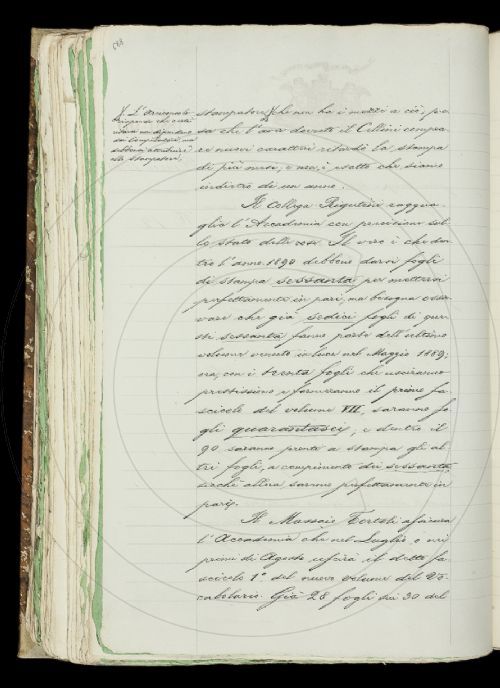 L'Arciconsolo
risponde che i
ritardi non dipendono
dai Compilatori, ma
debbonsi attribuire
allo Stampatore.
stampatore che non ha i mezzi a ciò, pen-
sa che l'aver dovuto il Cellini compra-
re nuovi caratteri ritardò la stampa
di più mesi, e non è esatto che siamo
indietro di un anno.
Il Collega Rigutini ragguа-
glia l'Accademia con precisione sul-
lo stato delle cose. Il vero è che den-
tro l'anno 1890 debbono darsi fogli
di stampa sessanta per mettersi
perfettamente in pari, ma bisogna osser-
vare che già sedici fogli di que-
sti sessanta fanno parte dell'ultimo
volume venuto in luce nel Maggio 1889;
ora, con i trenta fogli che usciranno
prestissimo e formeranno il primo fa-
scicolo del volume VII, saranno fo-
gli quarantasei; e dentro il
90 saranno pronti a stampa gli al-
tri fogli, a compimento dei sessanta,
sicchè allora saremo perfettamente in
pari.
Il Massaio Tortoli assicura
l'Accademia che nel Luglio o nei
primi di Agosto uscirà il detto fa-
scicolo 1° del nuovo volume del Vo-
cabolario. Già 28 fogli su 30 del